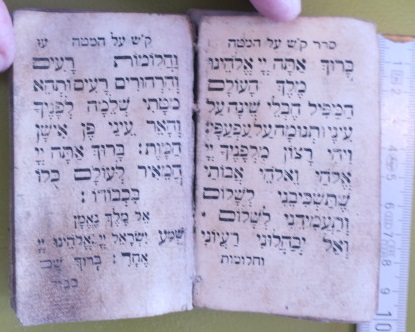 סדר ק״ש על המטה
בָּרוּךְ אַתָּה יְיָ אֱלֹהֵינוּ
מֶלֶךְ הָעוֹלָם
הַמַּפִּיל חֶבְלֵי שֵׁינָה עַל
עֵינַי וּתְנוּמָה עַל עַפְעַפַּי:
וִיהִי רָצוֹן מִלְּפָנֶיךָ יְיָ
אֱלֹהַי וֵאלֹהֵי אֲבוֹתַי
שֶׁתַּשְׁכִּיבֵנִי לְשָׁלוֹם
וְתַעֲמִידֵנִי לְשָׁלוֹם •
וְאַל יְבַהֲלוּנִי רַעְיוֹנַי
וחלומות
ק״ש על המטה
וַחֲלוֹמוֹת רָעִים
וְהִרְהוּרִים רָעִים וּתְהֵא
מִטָּתִי שְׁלֵמָה לְפָנֶיךָ
וְהָאֵר עֵינַי פֶּן אִישַׁן
הַמָּוֶת: בָּרוּךְ אַתָּה יְיָ
הַמֵּאִיר לָעוֹלָם כֻּלּוֹ
בִּכְבוֹדוֹ:
אֵל מֶלֶךְ נֶאֱמָן
שְׁמַע יִשְׂרָאֵל יְיָ אֱלֹהֵינוּ יְיָ
אֶחָד: בָּרוּךְ שֵׁם
כבוד
10